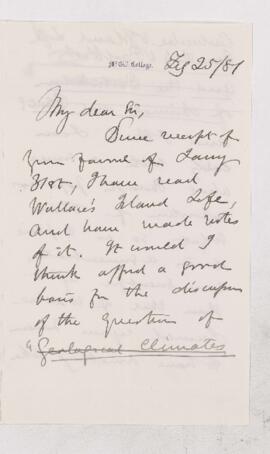 McGill College. Feb 25/81
My dear Sir,
Since receipt of
your favour of Jany
31st, I have read
Wallace's Island Life,
and have made notes
of it. It would I
think afford a good
basis for the discussion
of the question of
"Geological Climates